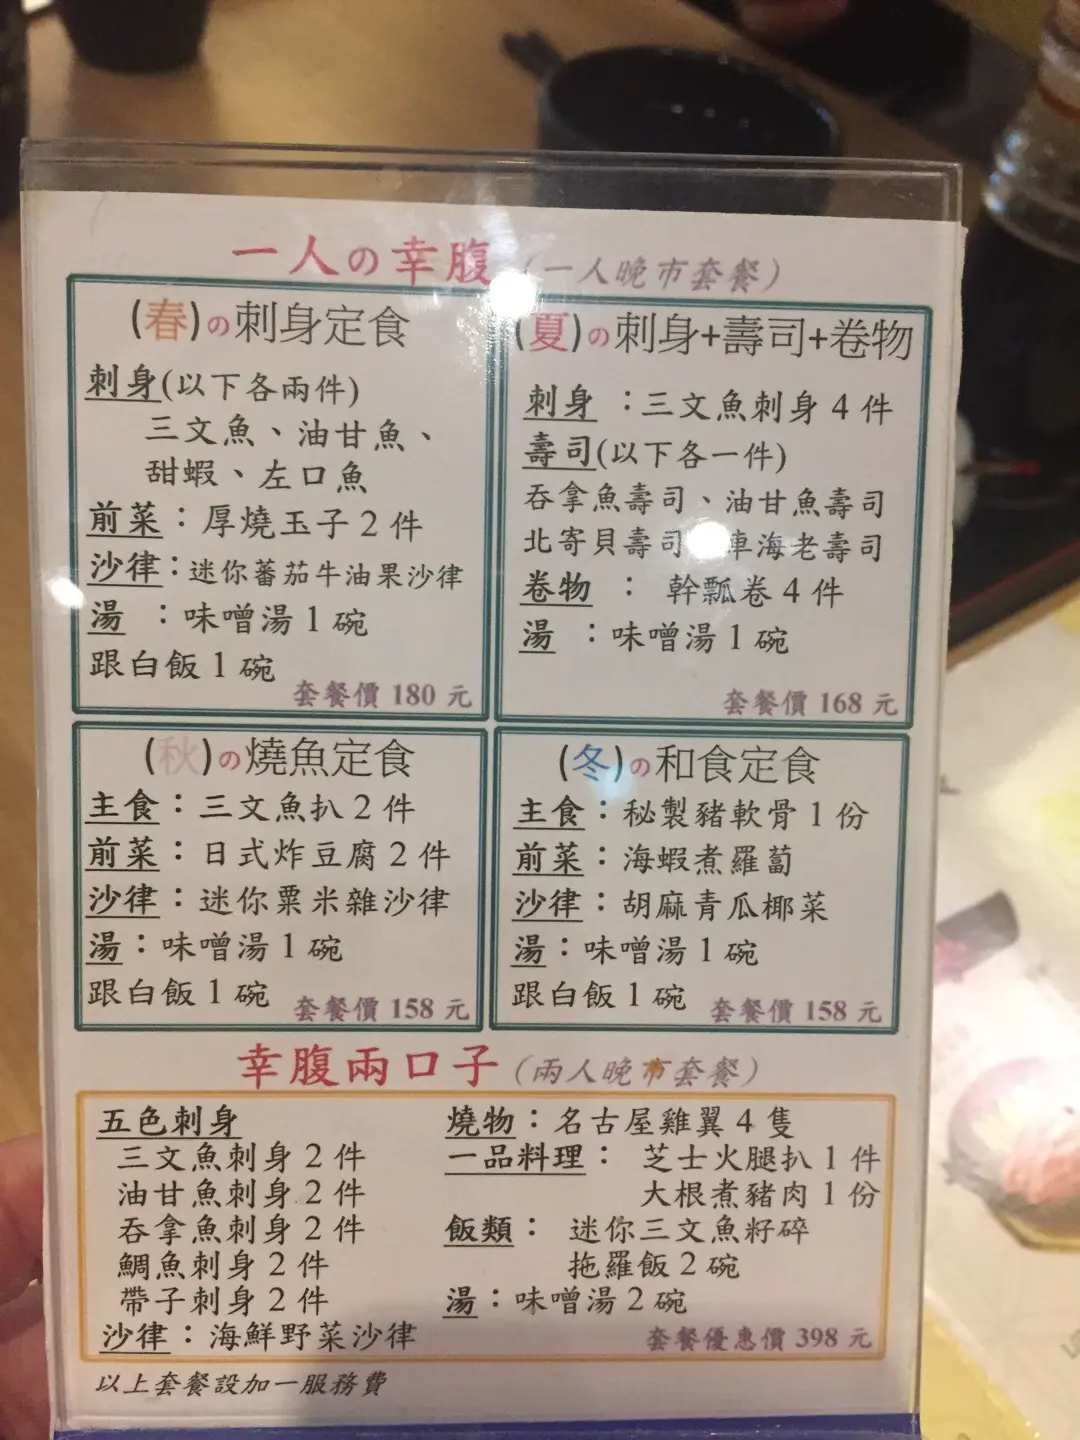 一人の幸腹 (一人晚市套餐)
(春)の刺身定食
刺身(以下各兩件)
三文魚、油甘魚、
甜蝦、左口魚
前菜：厚燒玉子 2 件
沙律：迷你蕃茄牛油果沙律
湯 ：味噌湯 1 碗
跟白飯 1 碗
套餐價 180 元
(夏)の刺身+壽司+卷物
刺身 ：三文魚刺身 4 件
壽司(以下各一件)
吞拿魚壽司、油甘魚壽司
北寄貝壽司 車海老壽司
卷物 ： 幹瓢卷 4 件
湯 ：味噌湯 1 碗
套餐價 168 元
(秋)の燒魚定食
主食：三文魚扒 2 件
前菜：日式炸豆腐 2 件
沙律：迷你粟米雜沙律
湯：味噌湯 1 碗
跟白飯 1 碗
套餐價 158 元
(冬)の和食定食
主食：秘製豬軟骨 1 份
前菜：海蝦煮羅蔔
沙律：胡麻青瓜椰菜
湯：味噌湯 1 碗
跟白飯 1 碗
套餐價 158 元
幸腹兩口子 (兩人晚市套餐)
五色刺身
三文魚刺身 2 件
油甘魚刺身 2 件
吞拿魚刺身 2 件
鯛魚刺身 2 件
帶子刺身 2 件
沙律：海鮮野菜沙律
燒物：名古屋雞翼 4 隻
一品料理： 芝士火腿扒 1 件
大根煮豬肉 1 份
飯類： 迷你三文魚籽碎
拖羅飯 2 碗
湯：味噌湯 2 碗
套餐優惠價 398 元
以上套餐設加一服務費